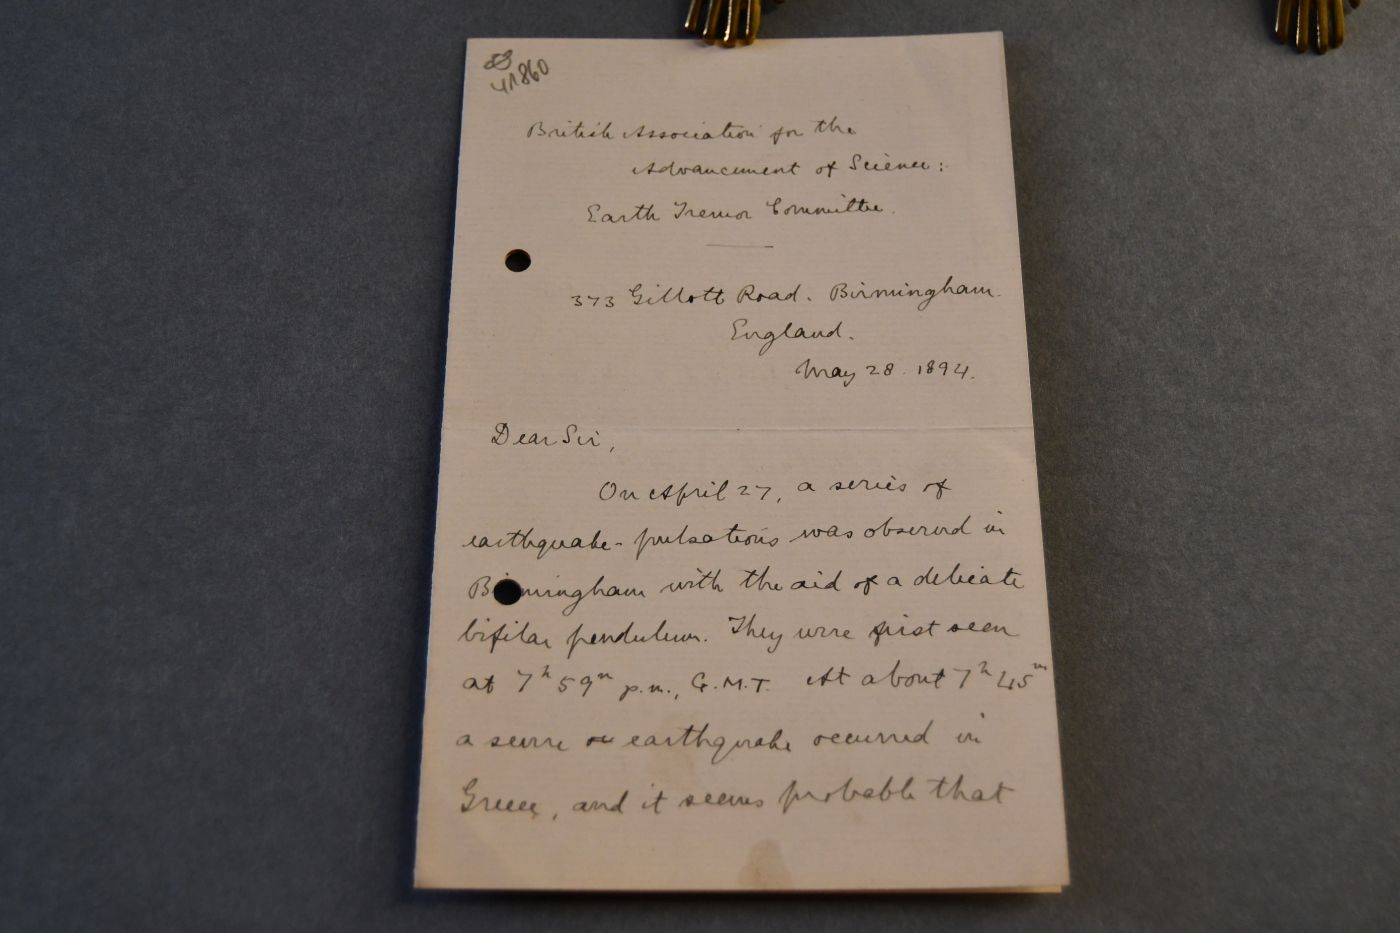 41860
British Association for the
Advancement of Science:
Earth Tremor Committee.
373 Gillott Road. Birmingham.
England.
May 28. 1894.
Dear Sir,
On April 27, a series of
earthquake-pulsations was observed in
Birmingham with the aid of a delicate
bifilar pendulum. They were first seen
at 7h 59m p.m., G.M.T. At about 7h 45m
a severe earthquake occurred in
Greece, and it seems probable that